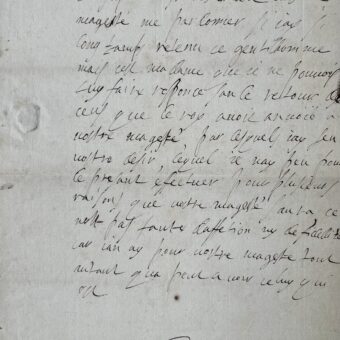 magesté me pardonner si iay si
long tamp retenu ce gentilhomme
mais cest madame que ie ne pouvois
luy faire responce san le retour de
ceus que le roy avoit anvoié a
vostre magesté par lesquels iay seu
vostre desir lequel ie nay peu pour
le presant efectuer pour plusieurs
raisons que vostre magesté saura ce
nest pas faute dafection ny de
car ian ay pour vostre magesté tout
autant qua peut avoir celuy qui
est